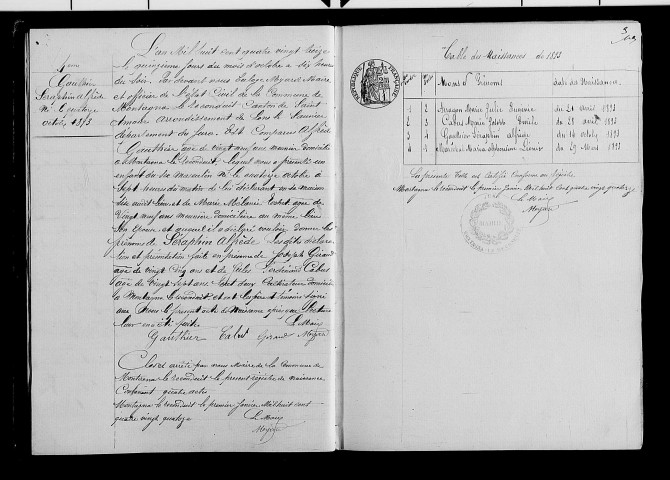 4eme
Gauthier
Séraphin Alfrède
Né le quatorze
octobre 1893
L'an Mil huit cent quatre vingt treize
le quinzième jour du mois d'octobre à six heures
du Soir. Par devant nous Moyard Maire
et officier de l'Etat Civil de la Commune de
Montagna le reconduit Canton de Saint
Amour arrondissement de Lons le Saunier
département du Jura. Est Comparu Alfrède
Gauthier âgé de vingt neuf ans meunier domicilié
à Montagna le reconduit, lequel nous a présenté un
enfant du sexe masculin né le quatorze octobre à
Sept heures du matin de lui déclarant en sa maison
et de Marie Mélanie âgée de
vingt neuf ans meunière domiciliée au même lieu
Son épouse et auquel il a déclaré vouloir donner les
prénoms de Séraphin Alfrède Lesdits déclara-
tion et présentation faits en présence de Joseph Girand
âgé de vingt cinq ans et de Jules Ferdinand Cabus
âgé de vingt sept ans tous deux Cultivateurs domiciliés
à Montagna le reconduit et ont les père et témoins signé
avec Nous le présent acte de naissance après que lecture
leur en a été faite Le Maire
Gauthier Cabus Girand Moyard
Clos et arrêté par nous Maire de la Commune de
Montagna le reconduit le présent registre de naissance
Contenant quatre actes
Montagna le reconduit le premier Janvier Mil huit cent
quatre vingt quatorze Le Maire
Moyard
3
Table des Naissances de 1893
REPUBLIQUE FRANÇAISE
Noms et Prénoms
Date des Naissances
1 2 Marie Julie du 21 avril 1893
2 3 Cabus Marie Emile du 28 avril 1893
3 4 Gauthier Séraphin Alfrède du 14 octobre 1893
4 1 Maria Alphonsine du 29 Mars 1893
La présente Table est Certifiée Conforme au registre
Montagna le reconduit le premier Janvier Mil huit cent quatre vingt quatorze
Le Maire
Moyard
MAIRIE